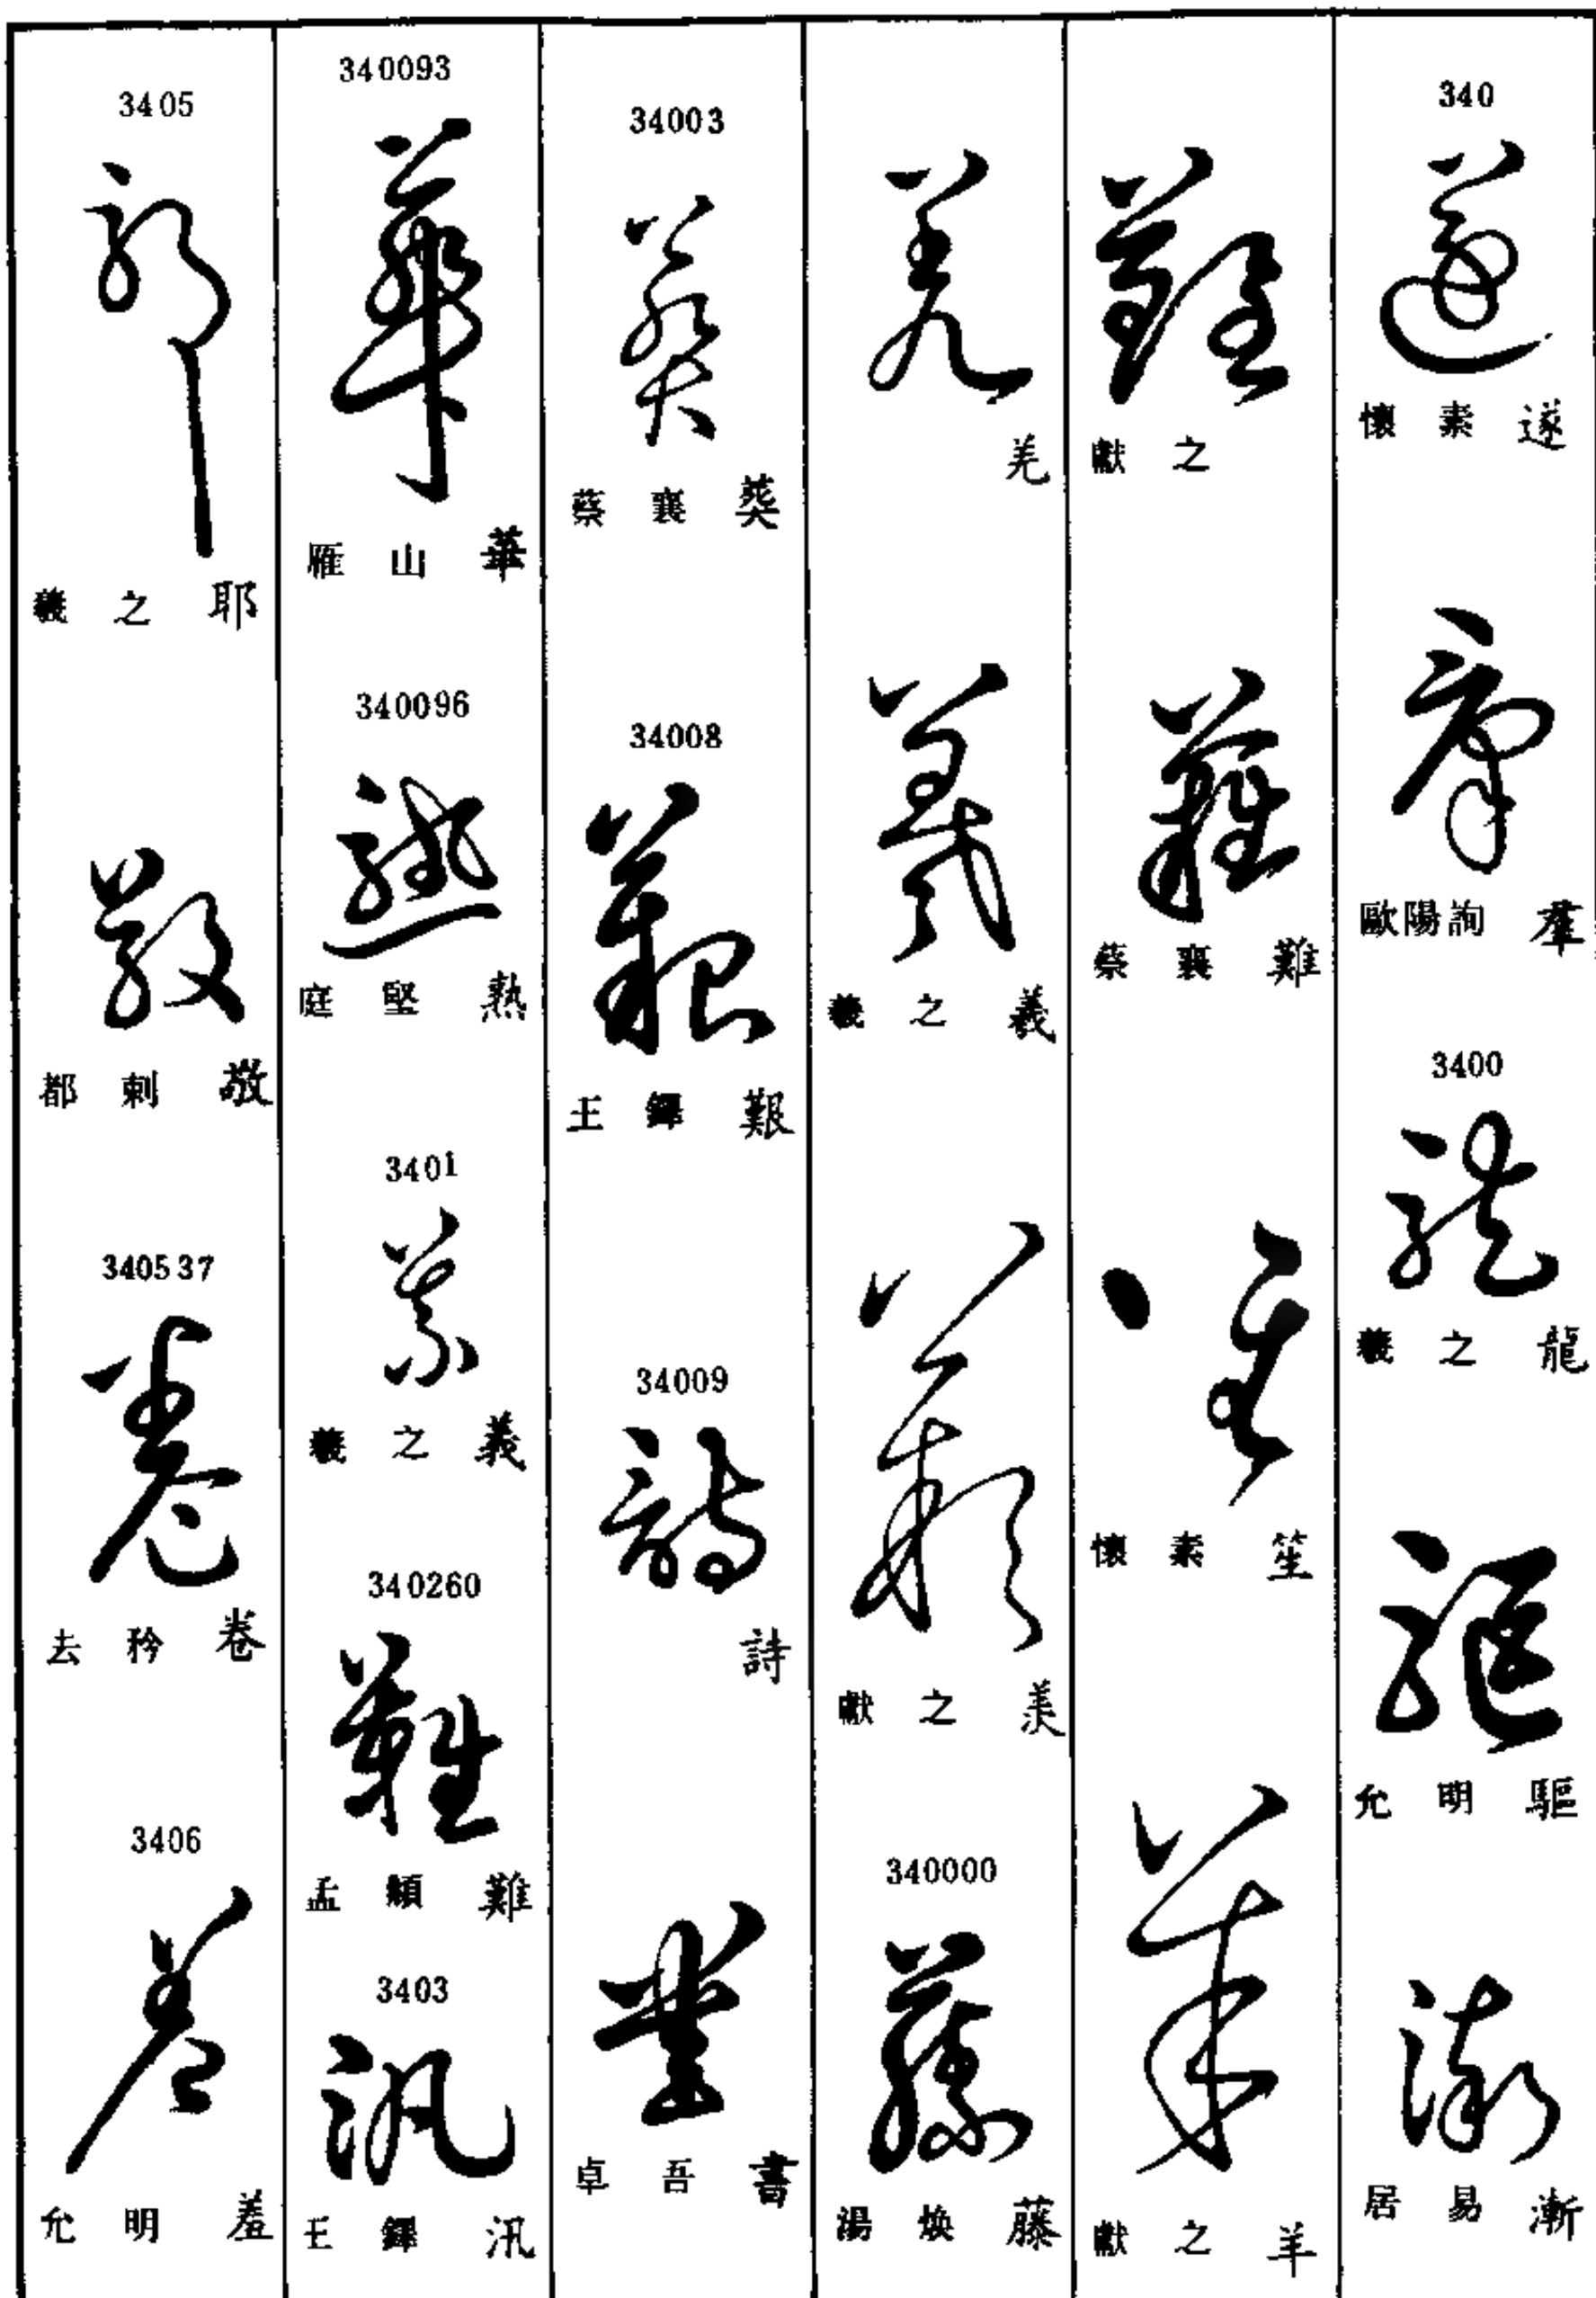 340
懷素 遂
歐陽詢 羣
3400
羲之 龍
允明 驅
居易 漸
獻之
蔡襄 難
懷素 笙
獻之 羊
羌
羲之 羲
獻之 羨
340000
湯煥 藤
34003
蔡襄 葵
34008
王鐸 艱
34009
詩
卓吾 書
340093
雁山 華
340096
庭堅 熟
3401
羲之 義
340260
孟頫 難
3403
王鐸 汛
3405
羲之 耶
都刺 敬
340537
去矜 卷
3406
允明 羞